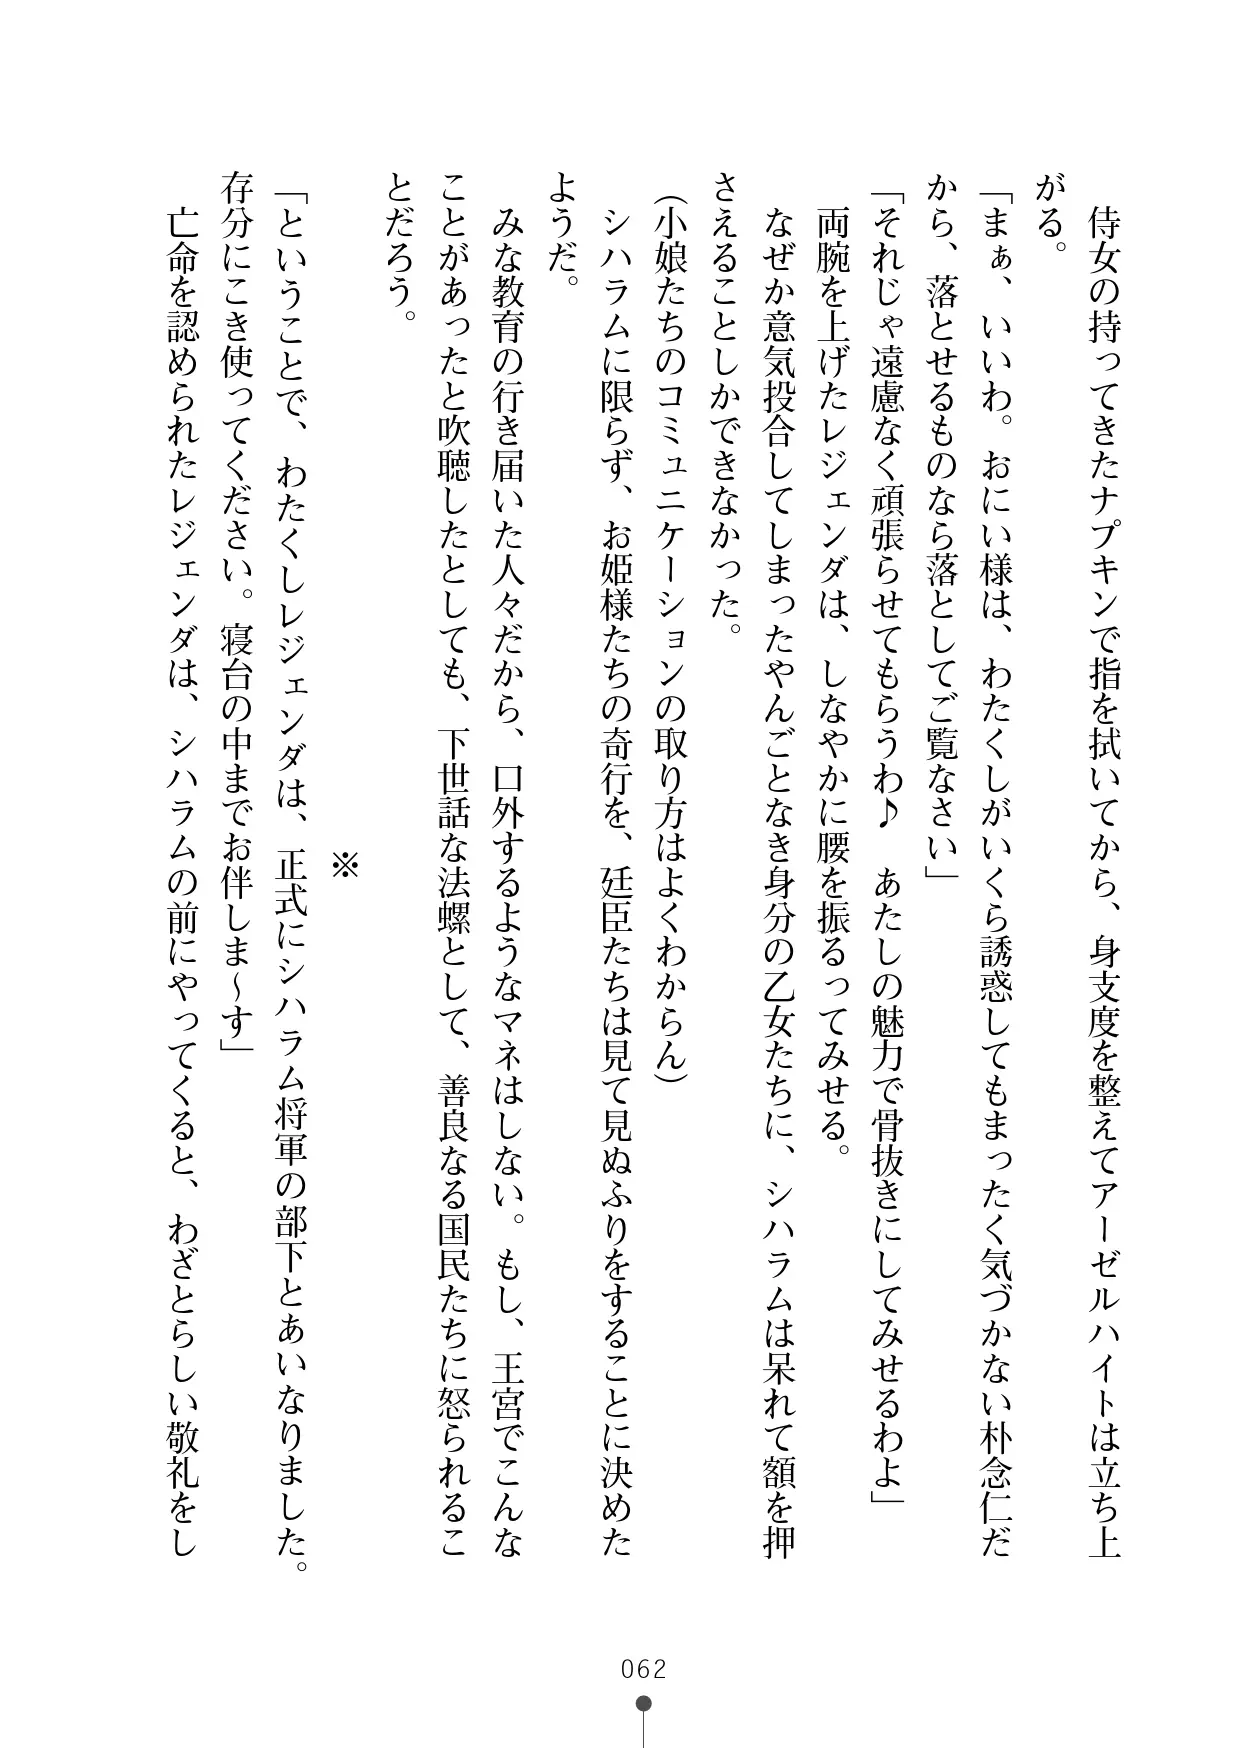 侍女の持ってきたナプキンで指を拭いてから、身支度を整えてアーゼルハイトは立ち上
がる。
「まぁ、いいわ。おにい様は、わたくしがいくら誘惑してもまったく気づかない朴念仁だ
から、落とせるものなら落としてご覧なさい」
「それじゃ遠慮なく頑張らせてもらうわ♪　あたしの魅力で骨抜きにしてみせるわよ」
両腕を上げたレジェンダは、しなやかに腰を振るってみせる。
なぜか意気投合してしまったやんごとなき身分の乙女たちに、シハラムは呆れて額を押
さえることしかできなかった。
（小娘たちのコミュニケーションの取り方はよくわからん）
シハラムに限らず、お姫様たちの奇行を、廷臣たちは見て見ぬふりをすることに決めた
ようだ。
みな教育の行き届いた人々だから、口外するようなマネはしない。もし、王宮でこんな
ことがあったと吹聴したとしても、下世話な法螺として、善良なる国民たちに怒られるこ
とだろう。
※
「ということで、わたくしレジェンダは、正式にシハラム将軍の部下とあいなりました。
存分にこき使ってください。寝台の中までお伴しま～す」
亡命を認められたレジェンダは、シハラムの前にやってくると、わざとらしい敬礼をし
062